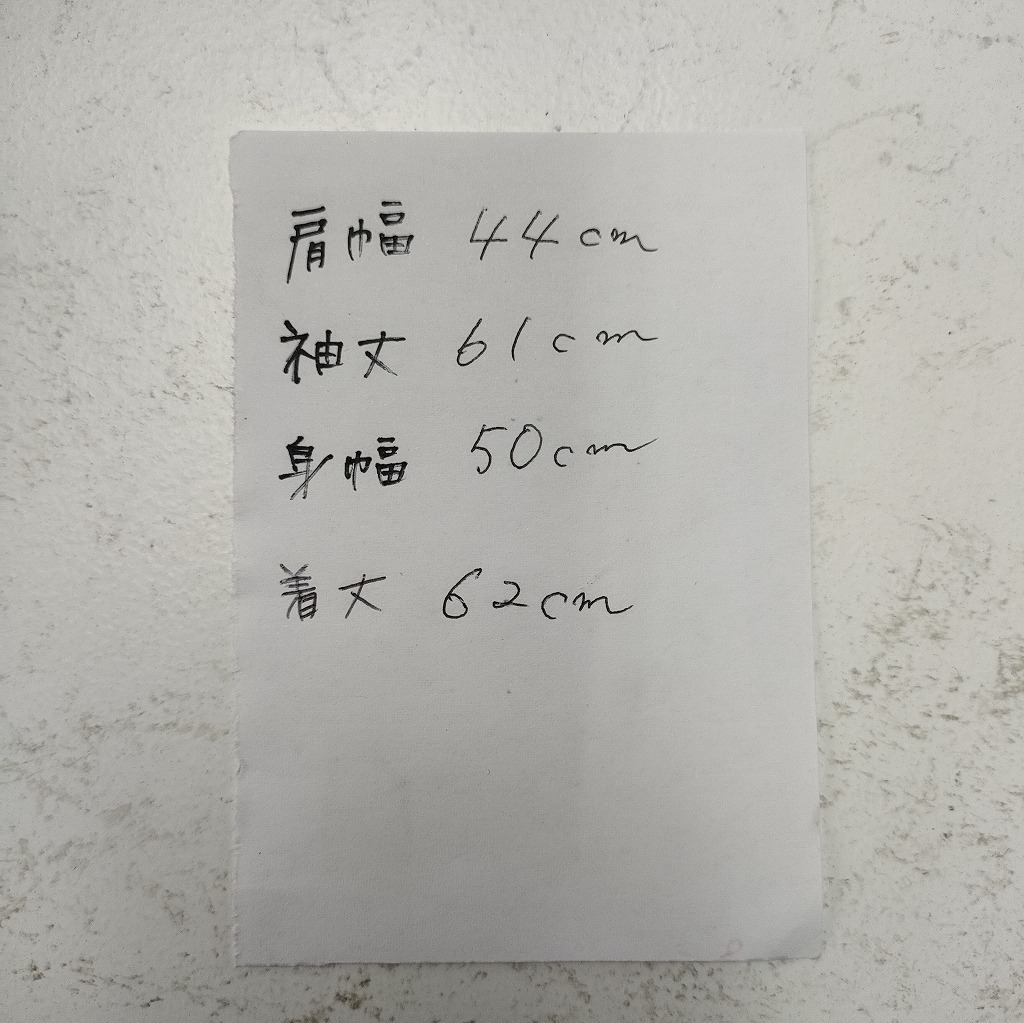 肩幅 44cm
袖丈 61cm
身幅 50cm
着丈 62cm